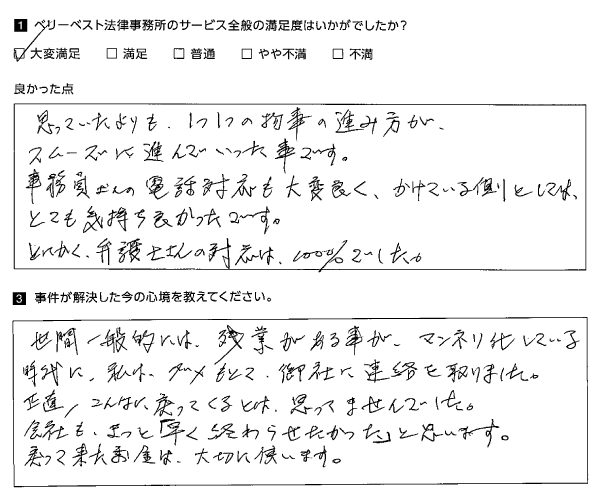 1 ベリーベスト法律事務所のサービス全般の満足度はいかがでしたか?
大変満足 満足 普通 やや不満 不満
良かった点
思っていたよりも、1つ1つの物事の進み方が、
スムーズに進んでいった事です。
事務員さんの電話対応も大変良く、かけている側としては、
とても気持ち良かったです。
とにかく、弁護士さんの対応は、1000%でした。
3 事件が解決した今の心境を教えてください。
世間一般的には、残業がある事が、マンネリ化している
時代に、私は、ダメもとで、御社に連絡を取りました。
正直、こんなに戻ってくるとは、思ってませんでした。
会社も、きっと「早く終わらせたかった」と思います。
戻って来たお金は、大切に使います。